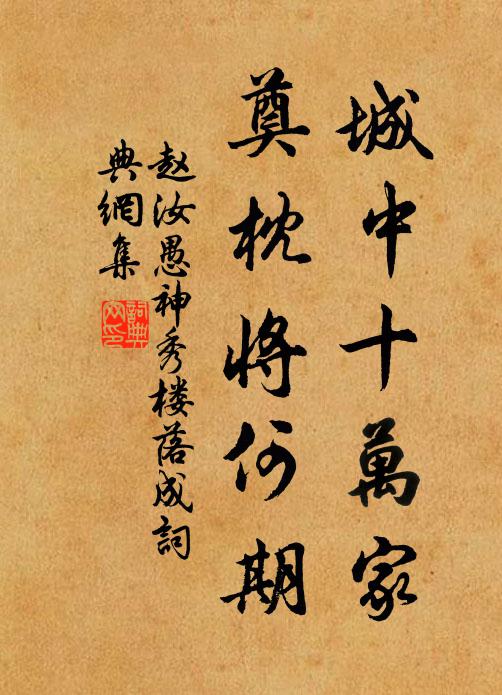 城中十萬家
奠枕將何期
赵汝愚神秀楼落成詞
典網集
詞典
网印